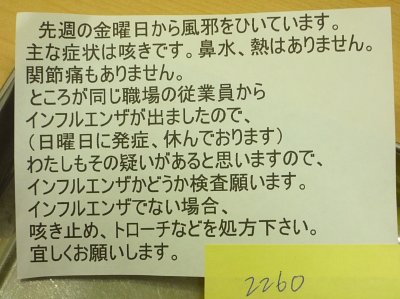 先週の金曜日から風邪をひいています。
主な症状は咳きです。鼻水、熱はありません。
関節痛もありません。
ところが同じ職場の従業員から
インフルエンザが出ましたので、
（日曜日に発症、休んでおります）
わたしもその疑いがあると思いますので、
インフルエンザかどうか検査願います。
インフルエンザでない場合、
咳き止め、トローチなどを処方下さい。
宜しくお願いします。
2260